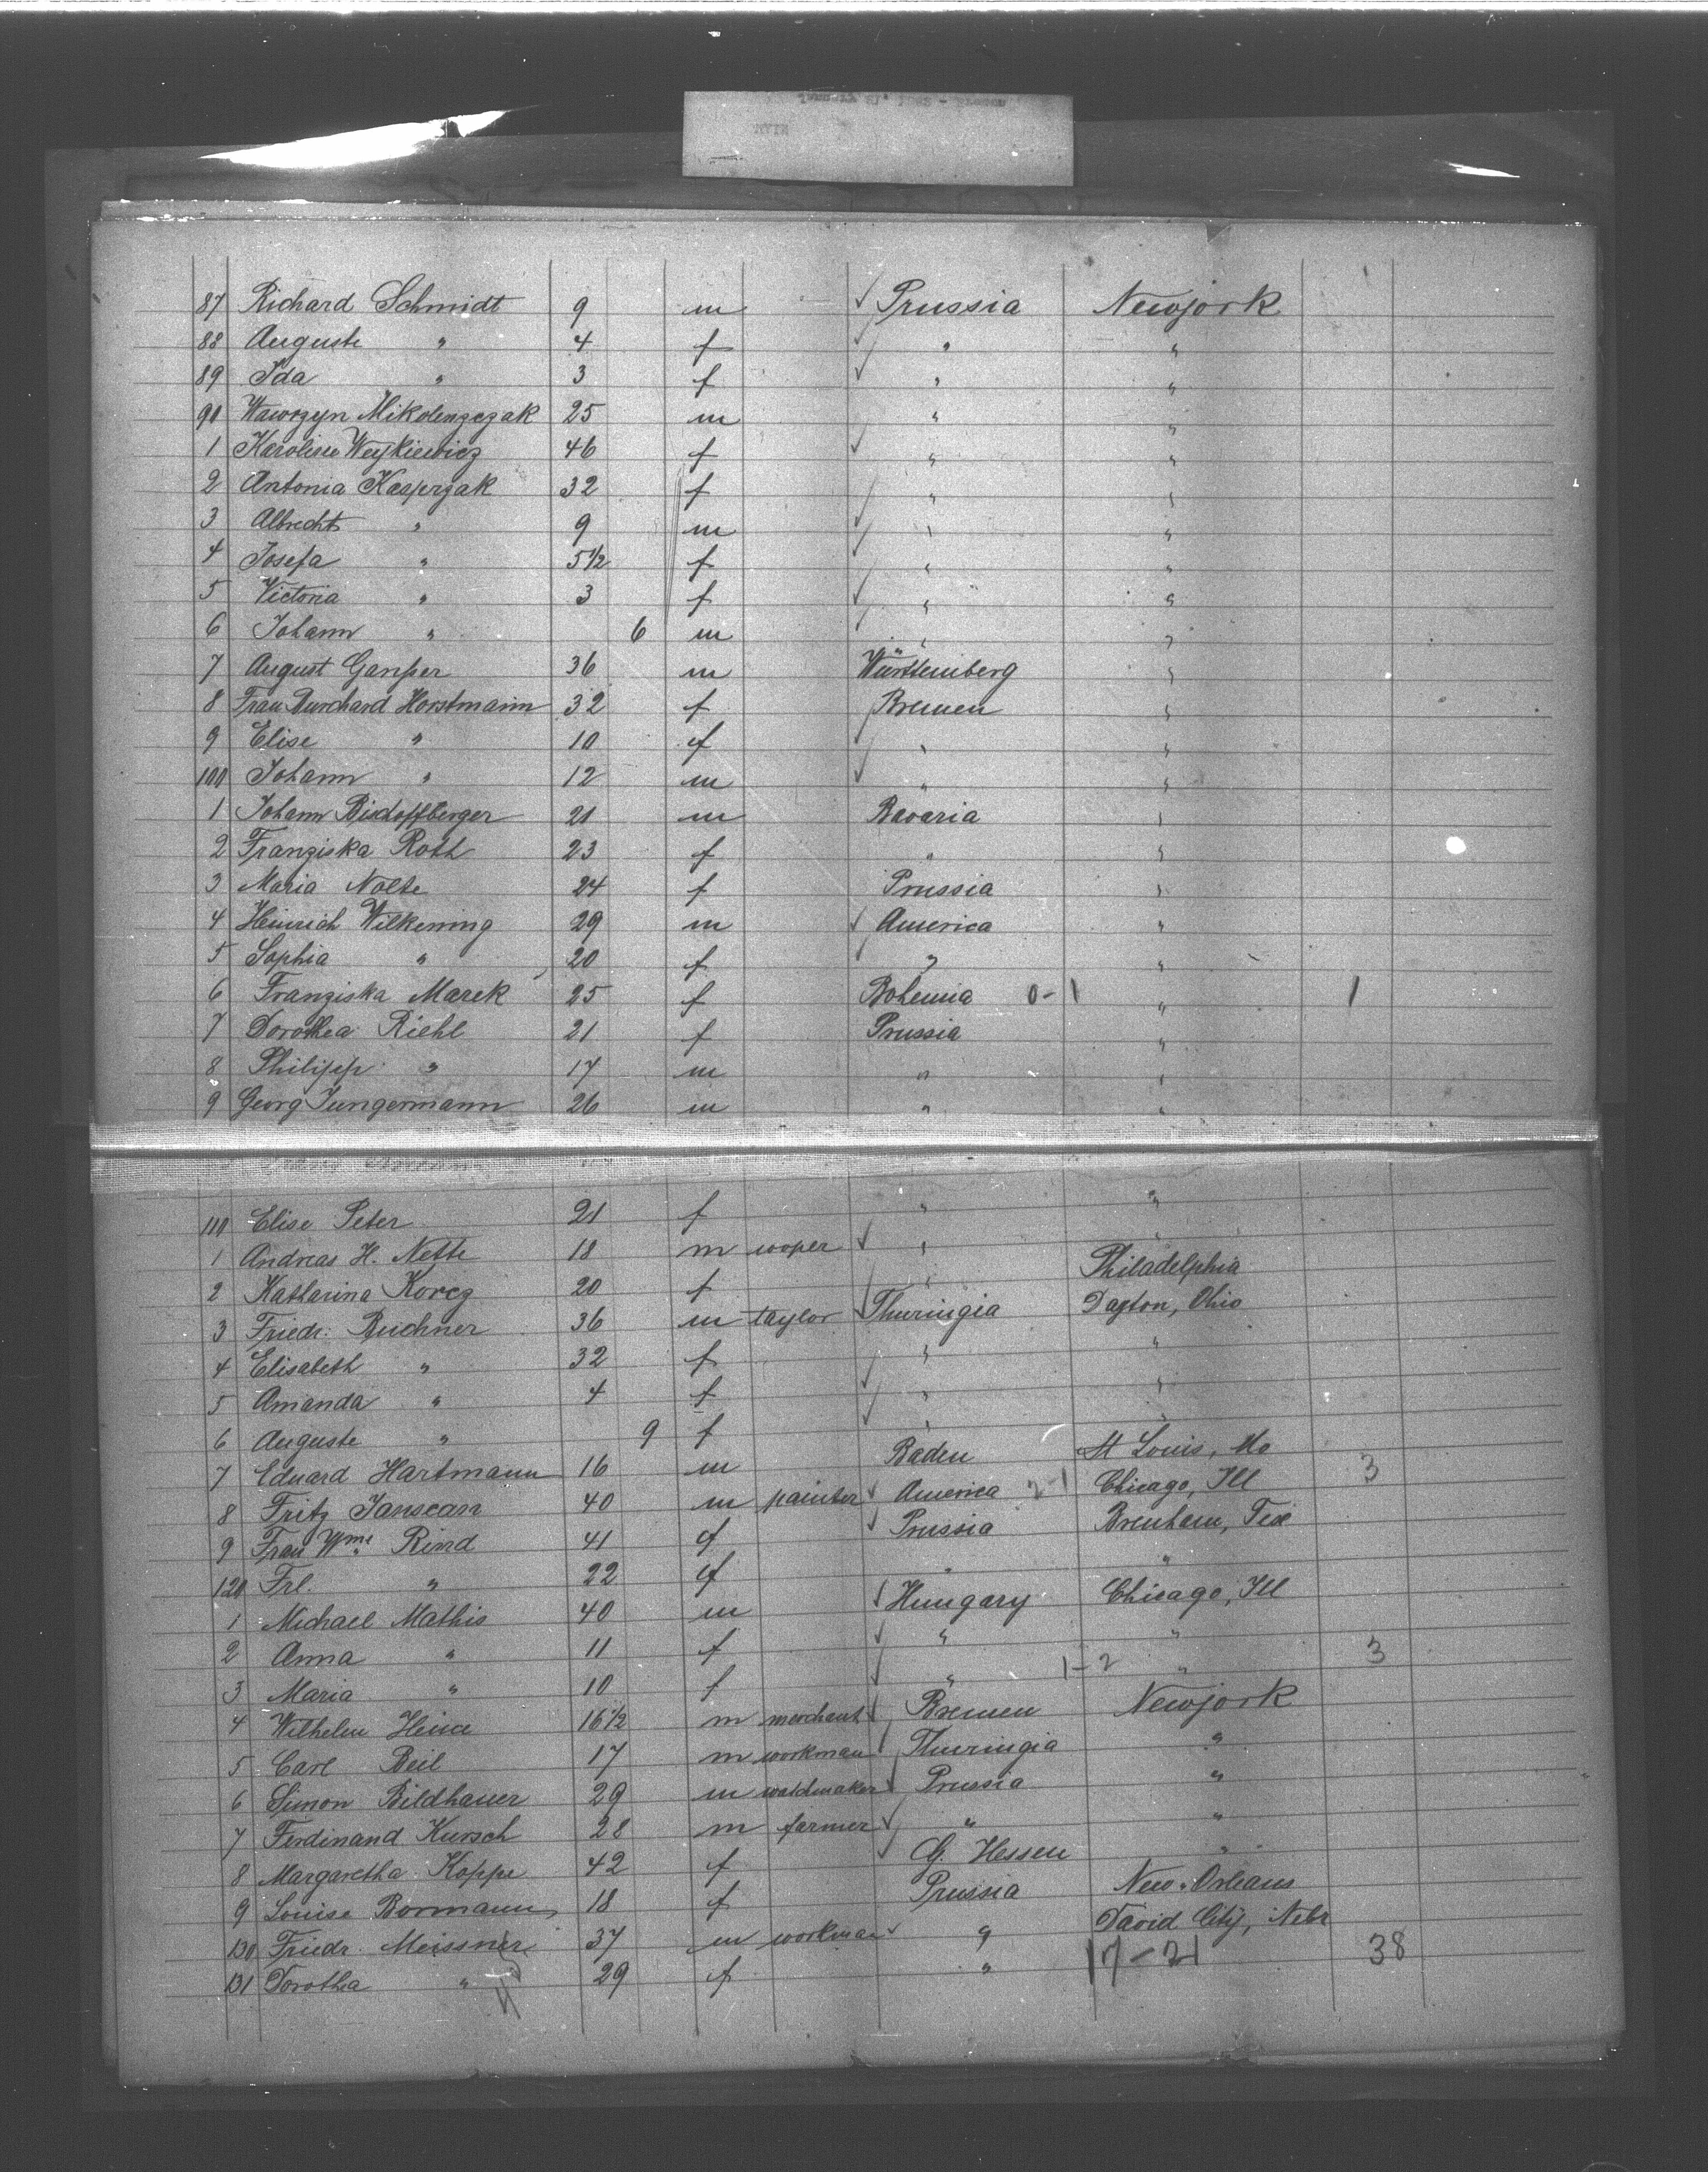 87 Richard Schmidt 9 m Prussia Newjork
88 Auguste " 4 f " "
89 Ida " 3 f " "
90 Wawrzyn Mikolenzczak 25 m " "
1 Karoline Weykiewicz 46 f " "
2 Antonia Kasperzak 32 f " "
3 Albrecht " 9 m " "
4 Josefa " 5 1/2 f " "
5 Victoria " 3 f " "
6 Johann " 6 m " "
7 August Ganßer 36 m Württemberg "
8 Frau Burchard Horstmann 32 f Bremen "
9 Elise " 10 f " "
100 Johann " 12 m " "
1 Johann Bischoffberger 21 m Bavaria "
2 Franziska Roth 23 f " "
3 Maria Nolte 24 f Prussia "
4 Heinrich Wilkening 29 m America "
5 Sophia " 20 f " "
6 Franziska Marek 25 f Bohemia 0-1 " 1
7 Dorothea Riehl 21 f Prussia "
8 Philipp " 17 m " "
9 Georg Jungermann 26 m " "
110 Elise Peter 21 f " "
1 Andreas H. Nette 18 m cooper " "
2 Katharina Korcz 20 f " Philadelphia
3 Friedr. Buchner 36 m taylor Thuringia Dayton, Ohio
4 Elisabeth " 32 f " "
5 Amanda " 4 f " "
6 Auguste " 9 f " "
7 Eduard Hartmann 16 m Baden St Louis, Mo
8 Fritz Jansean 40 m painter America 2-1 Chicago, Ill 3
9 Frau Wme Rind 41 f Prussia Brenham, Tex
120 Frl. " 22 f " "
1 Michael Mathis 40 m Hungary Chicago, Ill
2 Anna " 11 f " "
3 Maria " 10 f " 1-2 " 3
4 Wilhelm Heine 16 1/2 m merchant Bremen Newjork
5 Carl Beil 17 m workman Thuringia "
6 Simon Bildhauer 29 m watchmaker Prussia "
7 Ferdinand Kursch 28 m farmer " "
8 Margaretha Koppe 42 f G. Hessen "
9 Louise Bormann 18 f Prussia New-Orleans
130 Friedr. Meissner 37 m workman " David City, Nebr
131 Dorothea " 29 f " 17-21 38